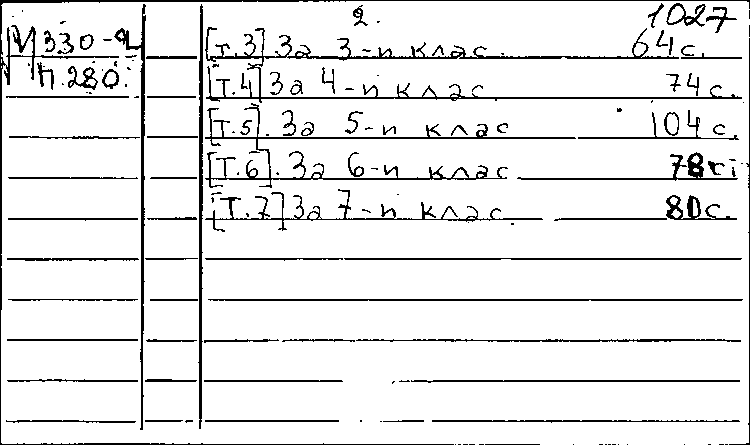 2. 1027
М330-Ч [т.3] За 3-и клас. 64с.
П.280. [т.4] За 4-и клас 74с.
[т.5]. За 5-и клас 104с.
[т.6]. За 6-и клас 78с.
[т.7] За 7-и клас. 80с.